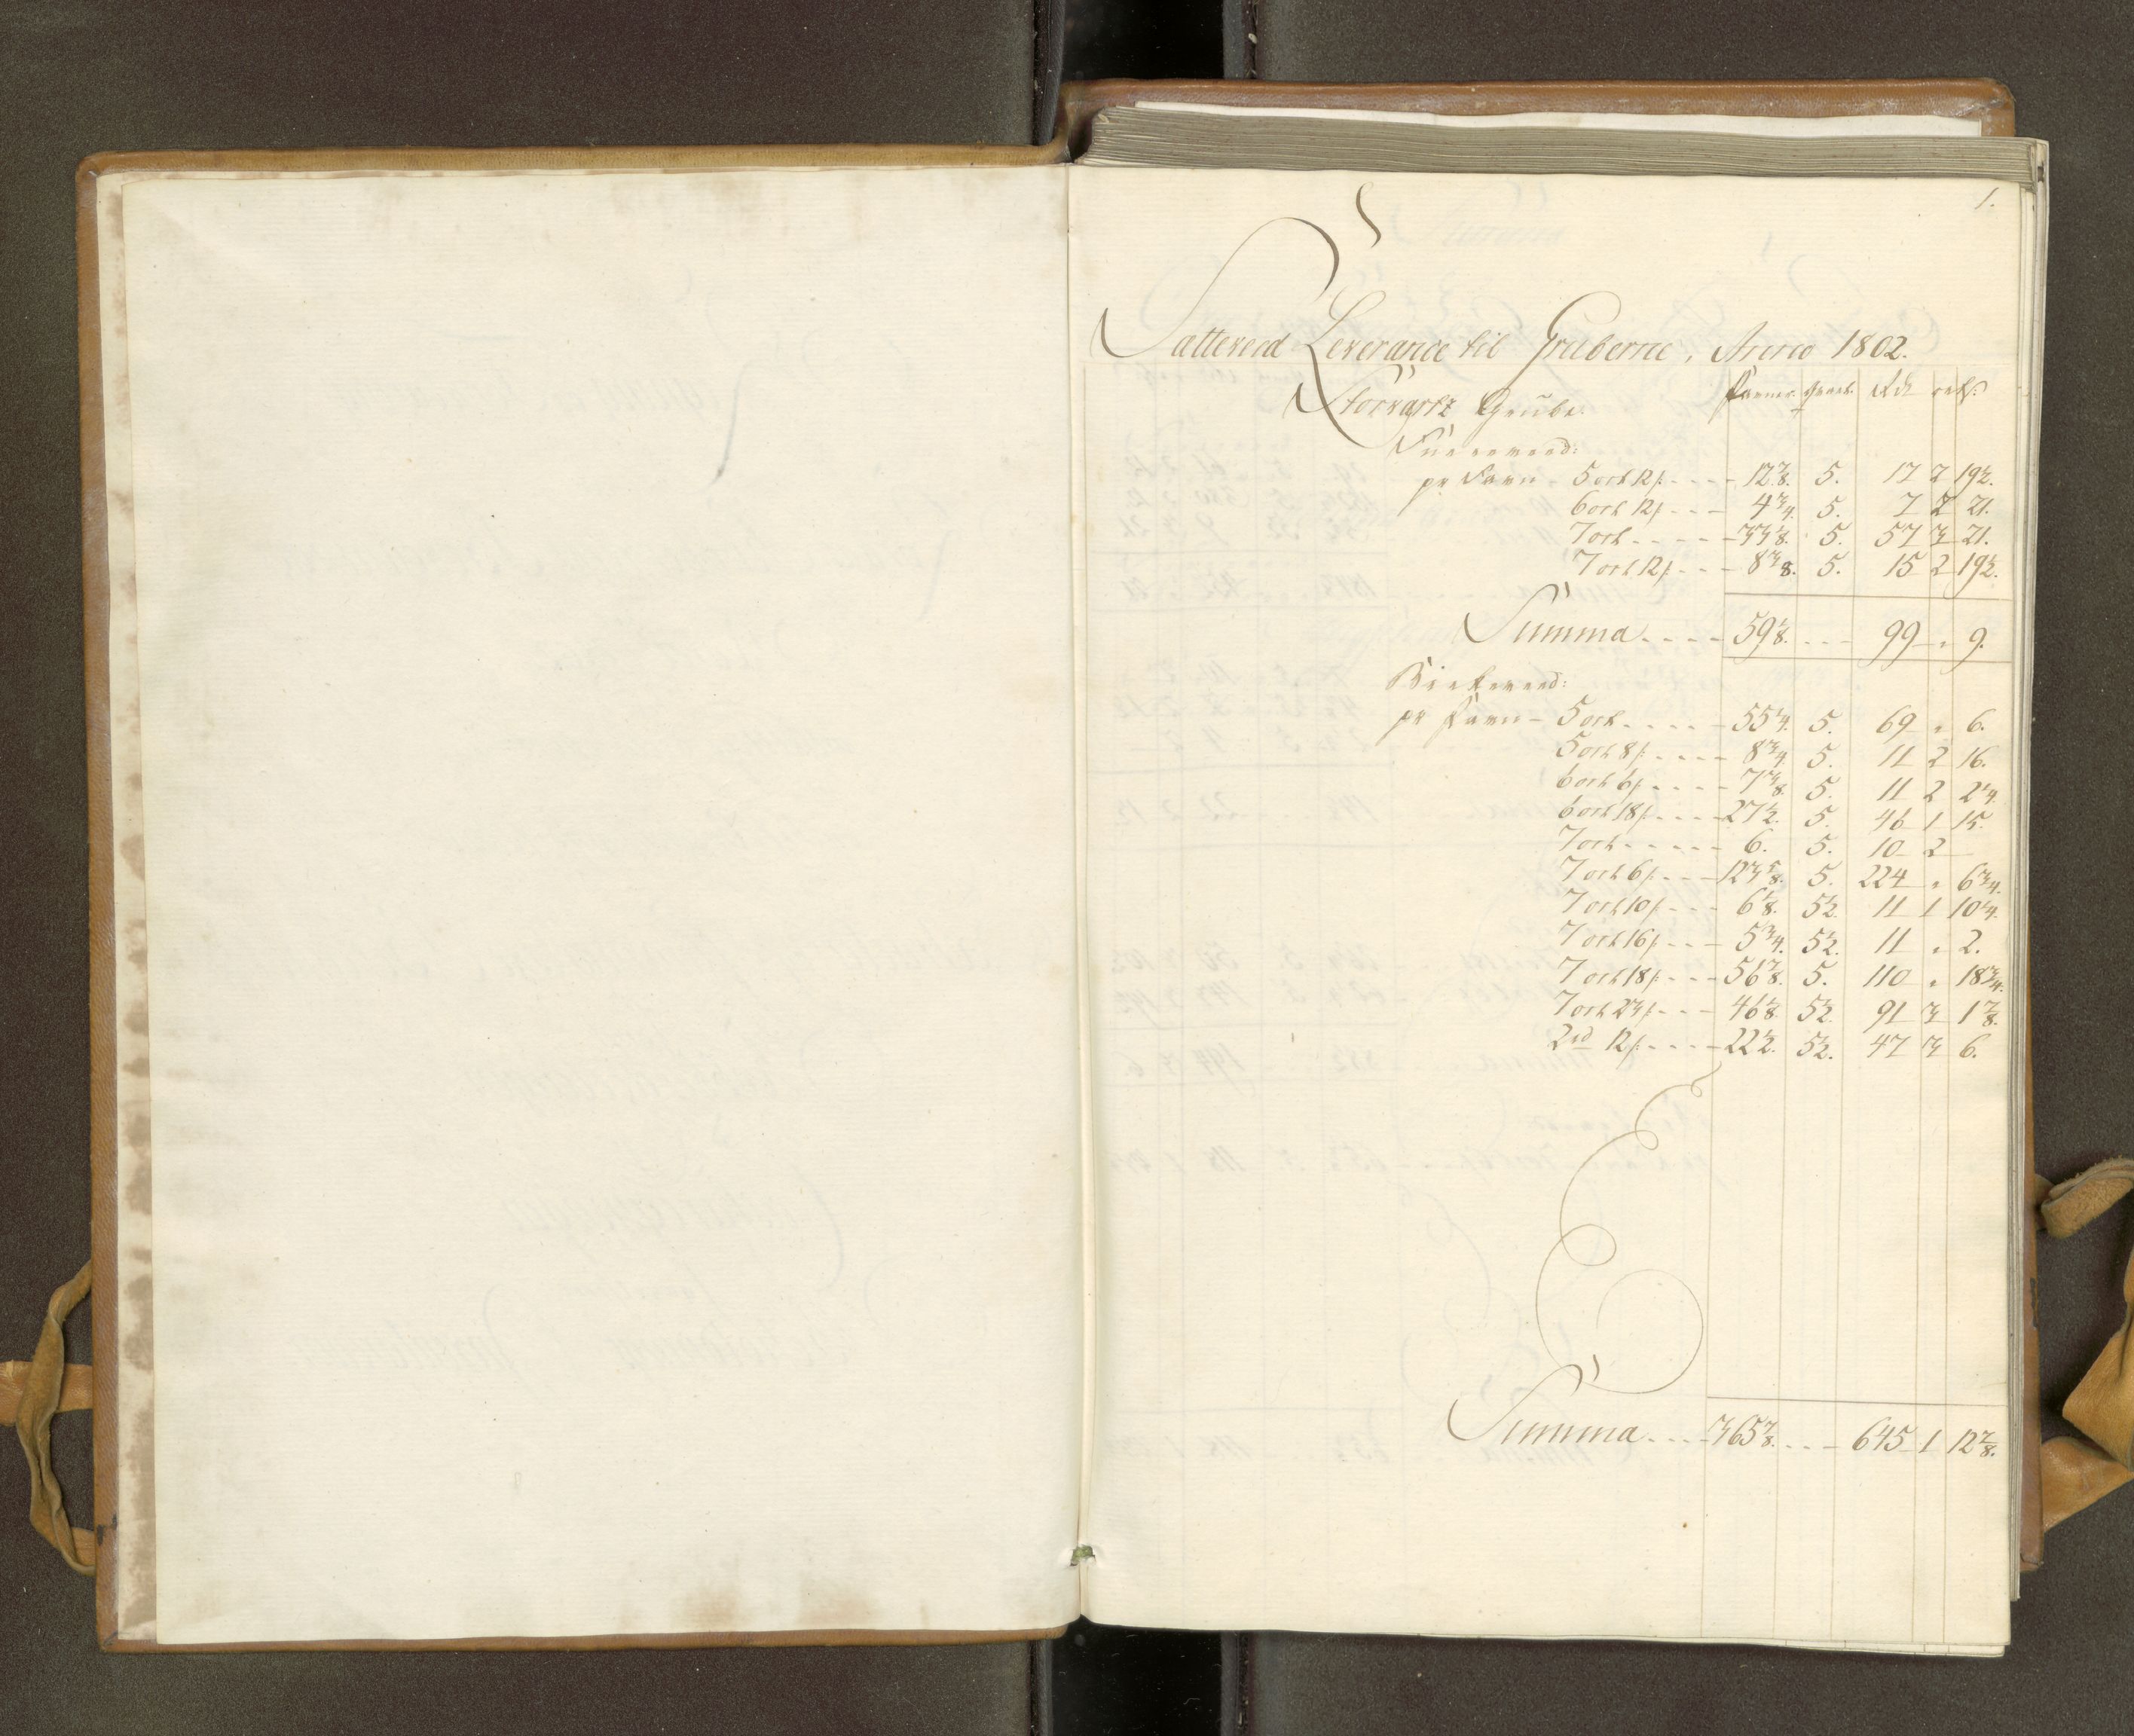 1.
Satteveed Leverance til Gruberne, Anno 1802.
Storvartz Grube. Favner. Qvart. Rdr ort ß.
Furreveed:
pr Favn - 5 ort 12 ß. - - - - 12 7/8. 5. 17 2 19½.
6 ort 12 ß - - - 4¾. 5. 7 2 21.
7 ort - - - - - 33 1/8. 5. 57 3 21.
7 ort 12 ß. - - - 8 3/8. 5. 15 2 19½.
Summa - - - - 59 1/8. - - - 99 „ 9.
Birkeveed:
pr Favn - 5 ort - - - - - 55¼. 5. 69 „ 6.
5 ort 8 ß. - - - - 8¾. 5. 11 2 16.
6 ort 6 ß. - - - - 7 3/8. 5. 11 2 2¼.
6 ort 18 ß. - - - - 27½. 5. 46 1 15.
7 ort - - - - - - 6. 5. 10 2 —
7 ort 6 ß. - - - 123 5/8. 5. 224 „ 6¾.
7 ort 10 ß. - - - 6 1/8. 5½. 11 1 10¼.
7 ort 16 ß. - - - 5¾. 5½. 11 „ 2.
7 ort 18 ß. - - - 56 7/8. 5. 110 „ 18¾.
7 ort 23 ß. - - - 46 1/8. 5½. 91 3 1 7/8.
2 rd 12 ß. - - - - 22½. 5½. 47 3 6.
Summa - - - - 365 7/8. - - - 645 1 12 7/8.